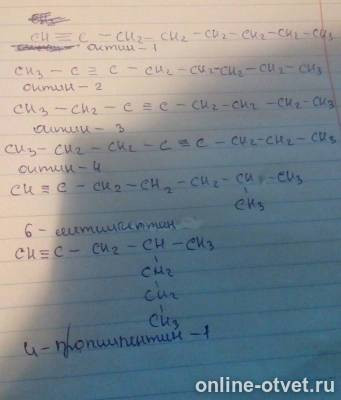 CH ≡ C - CH2 - CH2 - CH2 - CH2 - CH2 - CH3
октин - 1
CH3 - C ≡ C - CH2 - CH2 - CH2 - CH2 - CH3
октин - 2
CH3 - CH2 - C ≡ C - CH2 - CH2 - CH2 - CH3
октин - 3
CH3 - CH2 - CH2 - C ≡ C - CH2 - CH2 - CH3
октин - 4
CH ≡ C - CH2 - CH2 - CH2 - CH - CH3
CH3
6 - метилгептин
CH ≡ C - CH2 - CH - CH3
CH2
CH2
CH3
4 - пропилпентин - 1
online-otvet.ru